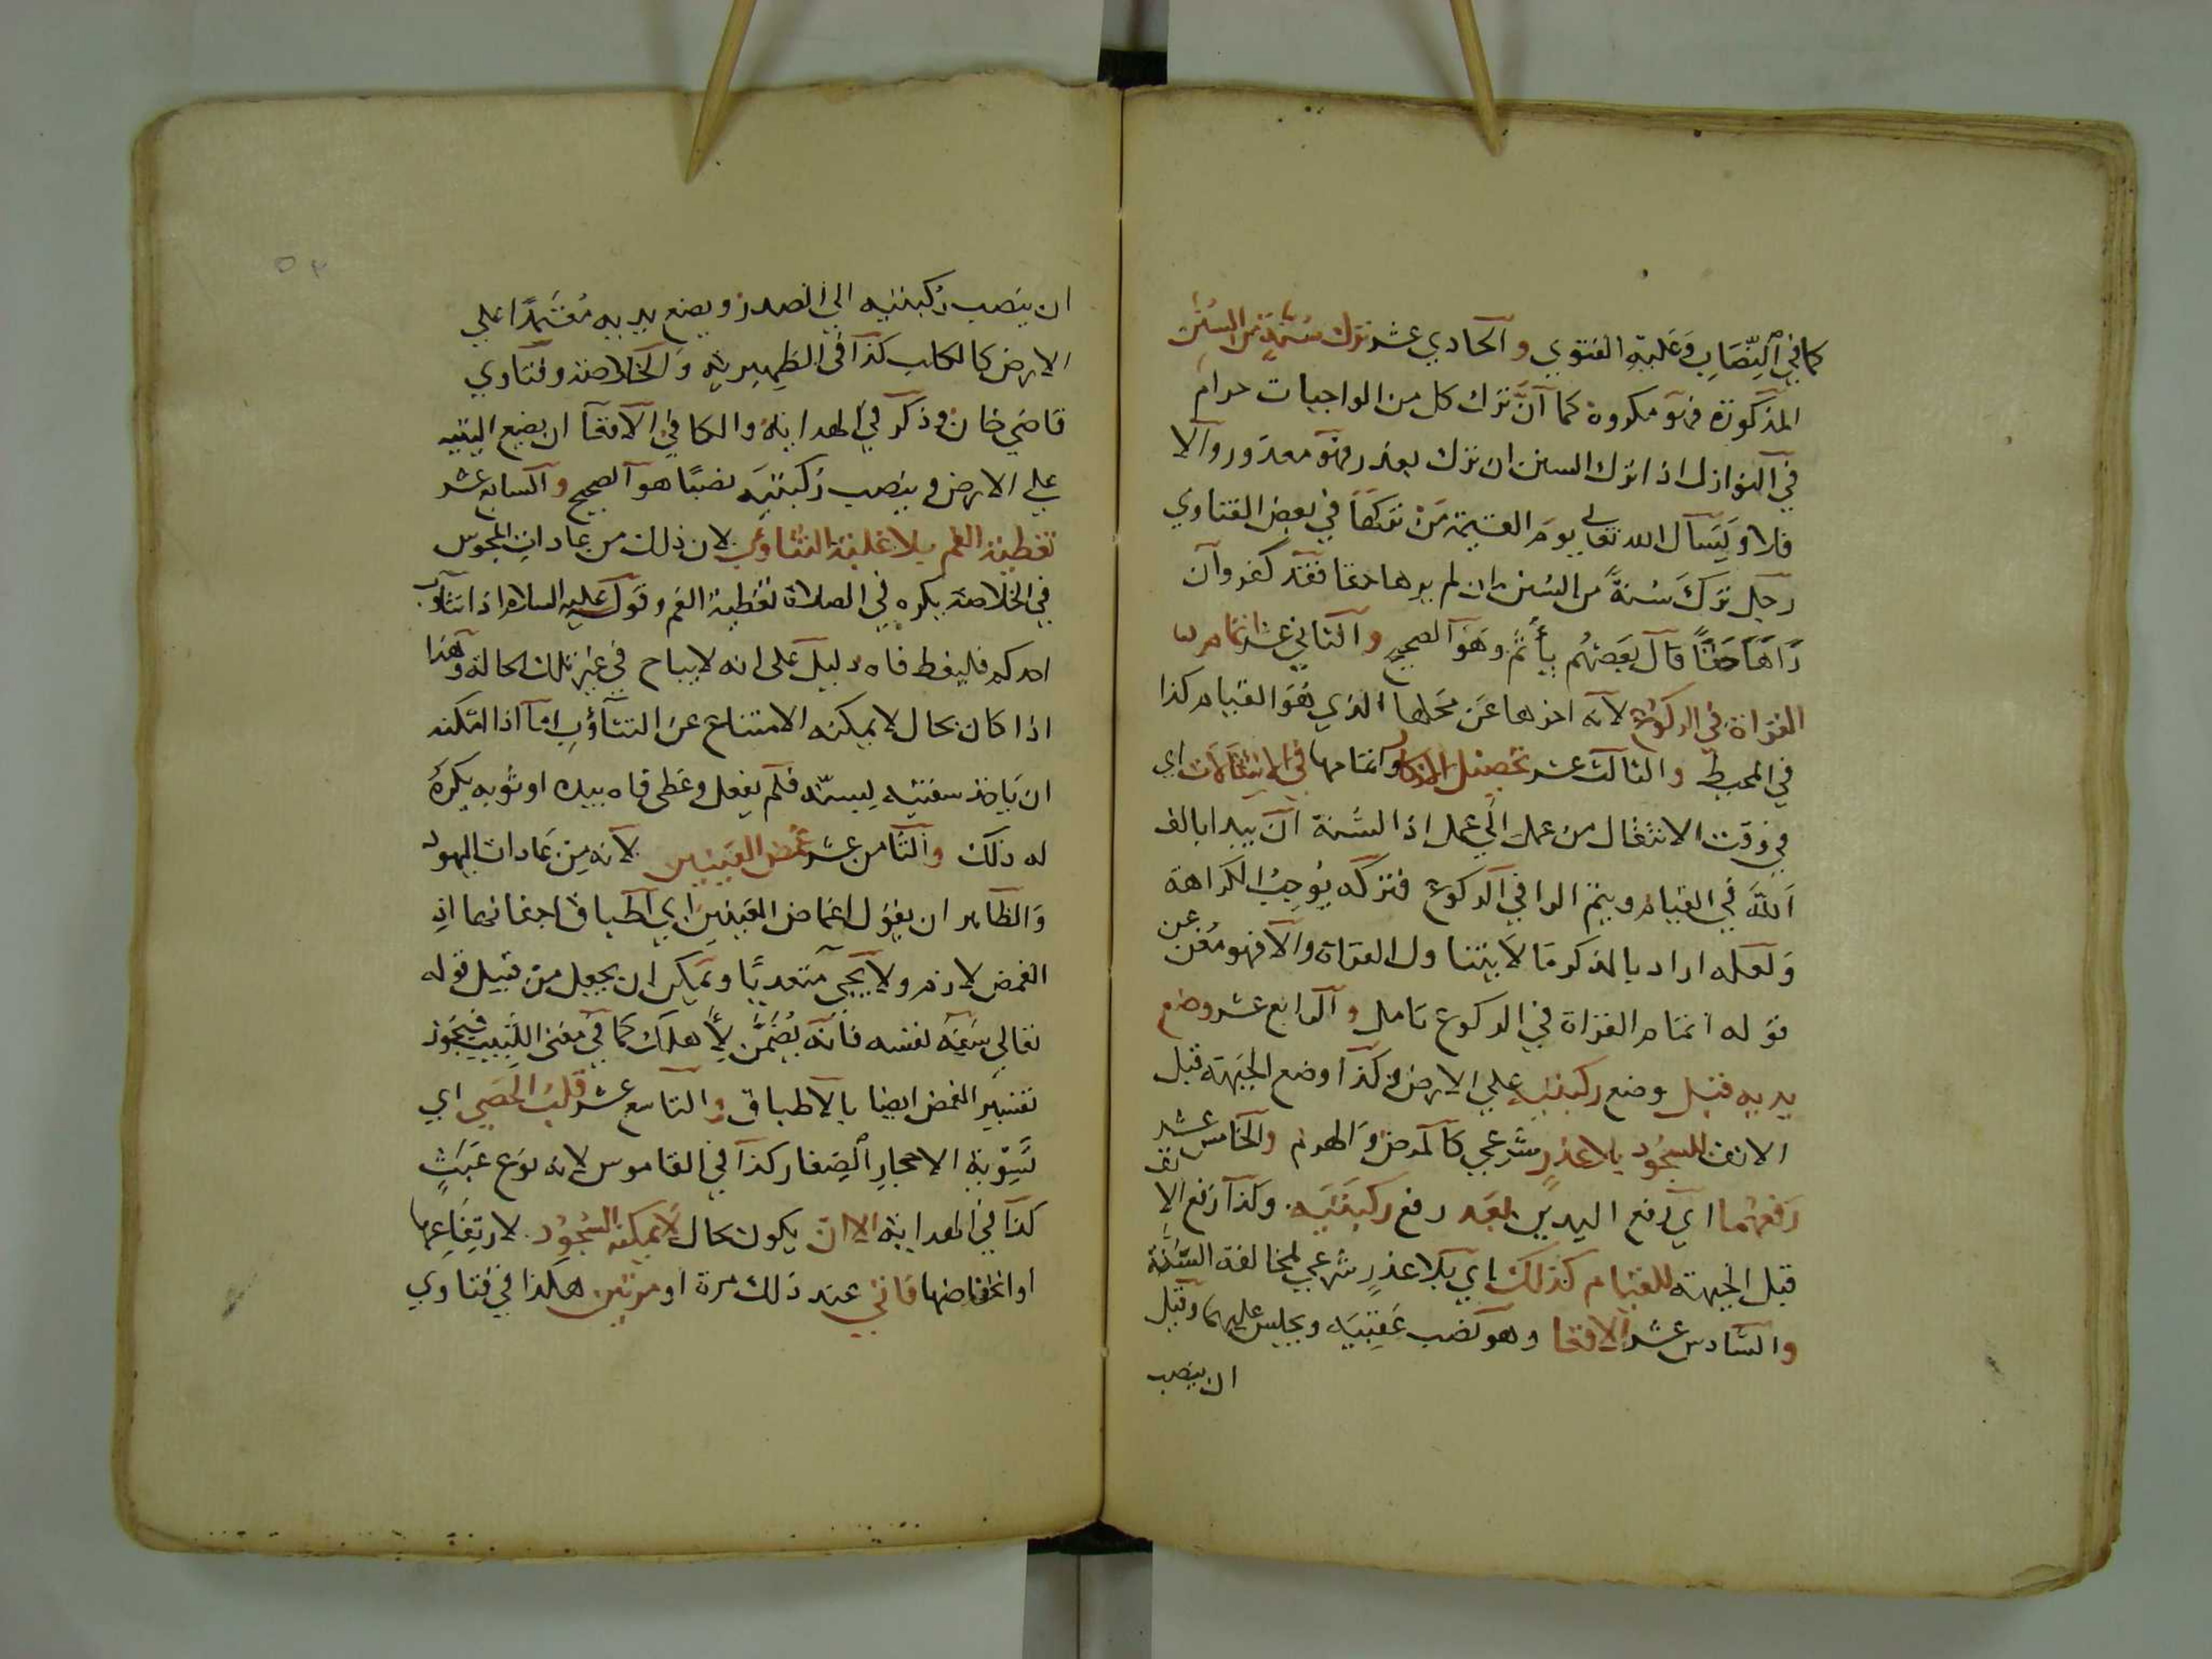 كما في النصاب وعليه الفتوي والحادي عشر ترك سنة من السنن
المذكورة فهو مكروه كما ان ترك كل من الواجبات حرام
في النوازل اذا ترك السنن ان ترك بعذر فهو معذور والا
فلا ويسال الله تعالى يوم القيمة من تركها في بعض الفتاوي
رجل ترك سنة من السنن ان لم يرها حقا فقد كفر وان
رآها حقا قال بعضهم يأثم وهو الصحيح والثاني عشر اتمام
القراة في الركوع لانه اخرها عن محلها الذي هو القيام كذا
في المحيط والثالث عشر تحصيل الاذكار واتمامها في الانتقالات اي
في وقت الانتقال من عمل الي عمل اذ السنة ان يبدا بالف
الله في القيام ويتم الرا في الركوع فتركه يوجب الكراهة
ولعله اراد بالذكر ما لا يتناول القراة والا فهو مغن عن
قوله اتمام القراة في الركوع تامل والرابع عشر وضع
يديه قبل وضع ركبتيه علي الارض وكذا وضع الجبهة قبل
الانف للسجود بلا عذر شرعي كالمرض والهرم والخامس عشر
رفعهما اي رفع اليدين بعد رفع ركبتيه وكذا رفع الانف
قبل الجبهة للقيام كذلك اي بلا عذر شرعي لمخالفة السنة
والسادس عشر الاقعا وهو نصب عقبيه ويجلس عليهما وقيل
ان ينصب
ان ينصب ركبتيه الي الصدر ويضع يديه معتمدا علي
الارض كالكلب كذا في الظهيرية والخلاصة وفتاوي
قاضي خان وذكر في الهداية والكافي الاقعا ان يضع اليتيه
علي الارض وينصب ركبتيه نصبا هو الصحيح والسابع عشر
تغطية الفم بلا غلبة التثاؤب لان ذلك من عادات المجوس
في الخلاصة يكره في الصلاة تغطية الفم وقوله عليه السلام اذا تثاوب
احدكم فليغط فاه دليل على انه لا يباح في غير تلك الحالة وهذا
اذا كان بحال لا يمكنه الامتناع عن التثاؤب اما اذا امكنه
ان ياخذ شفتيه ليسده فلم يفعل وغطى فاه بيده او ثوبه يكره
له ذلك والثامن عشر غمض العينين لانه من عادات اليهود
والظاهر ان يقول اغماض العينين اي اطباق اجفانهما اذ
الغمض لازم ولا يجي متعديا ويمكن ان يجعل من قبيل قوله
تعالي سفه نفسه فانه يضمن لاهلك كما في مغني اللبيب فيجوز
تفسير الغمض ايضا بالاطباق والتاسع عشر قلب الحصي اي
تسوية الاحجار الصغار كذا في القاموس لانه نوع عبث
كذا في الهداية الا ان يكون بحال لا يمكنه السجود لارتفاعها
او انخفاضها فاني عند ذلك مرة او مرتين هكذا في فتاوي